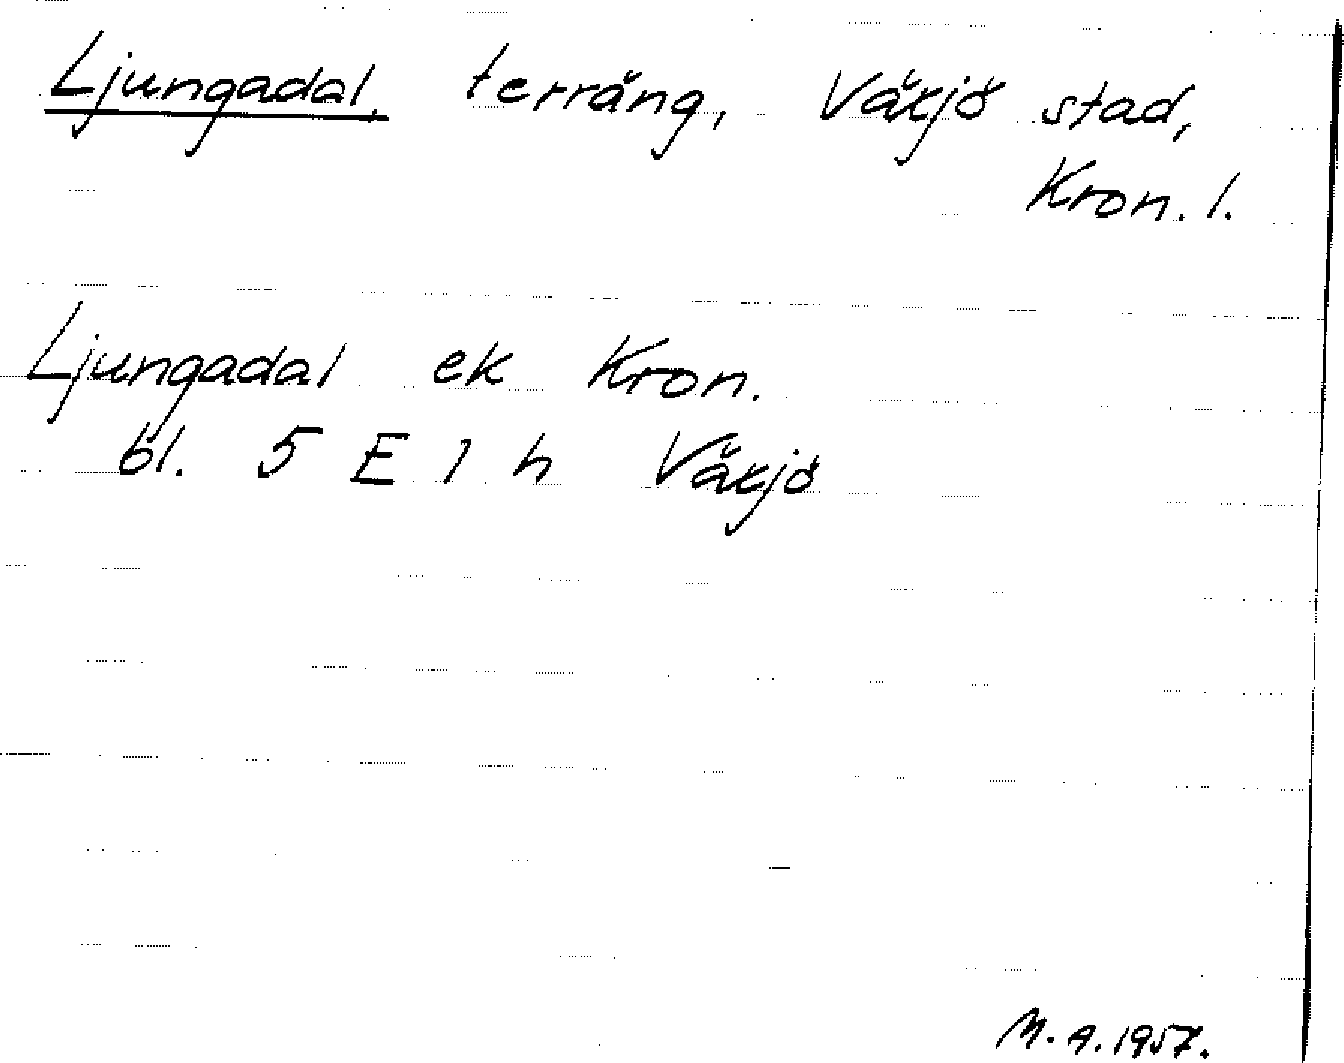 Ljungadal, terräng, Växjö stad,
Kron. l.
Ljungadal ek Kron.
bl. 5 E 1 h Växjö
M. A. 1957.